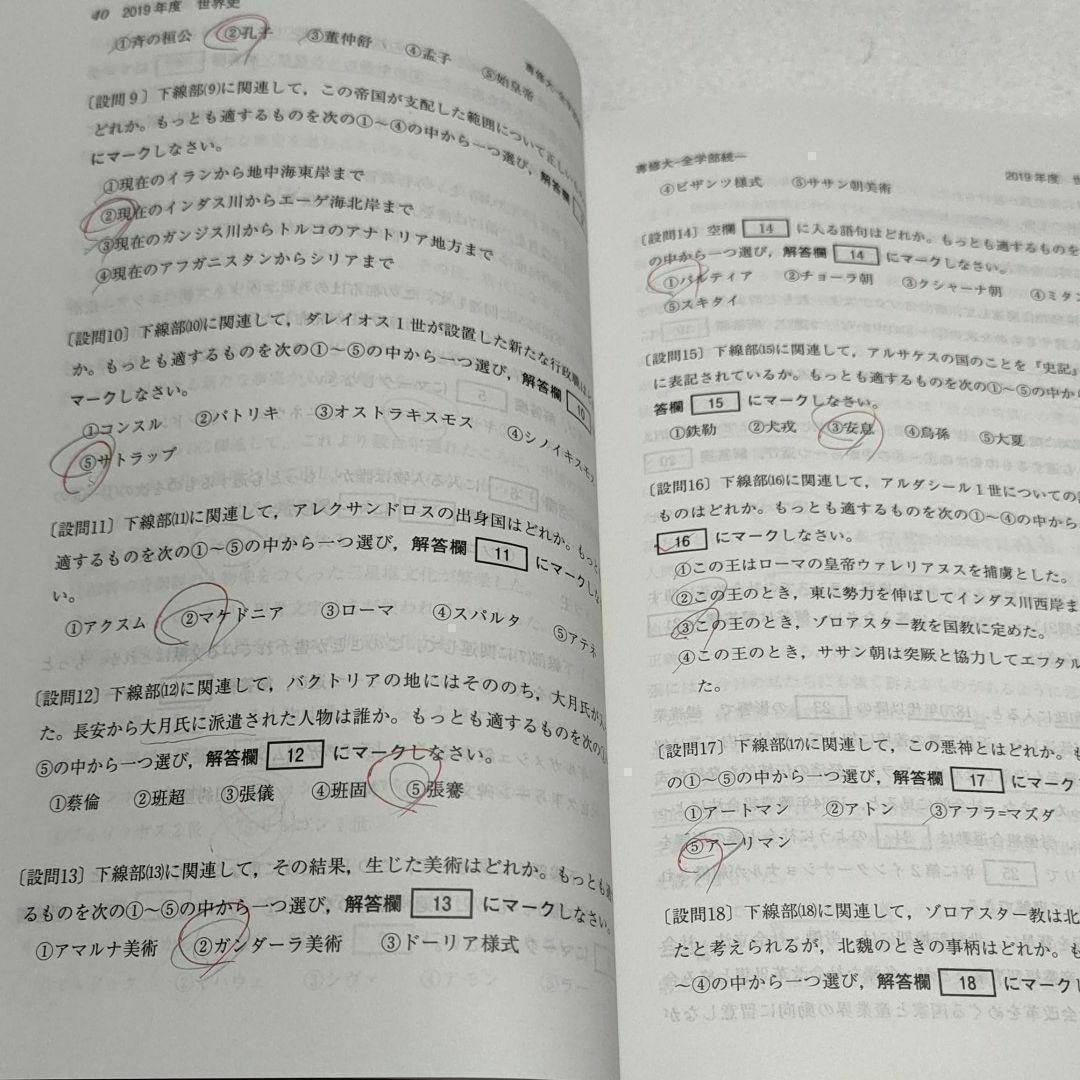 40 2019年度 世界史
専修大-全学部
①斉の桓公 ②孔子 ③董仲舒 ④孟子 ⑤始皇帝
〔設問9〕下線部(9)に関連して，この帝国が支配した範囲について正しい
どれか。もっとも適するものを次の①～④の中から一つ選び，解答欄
にマークしなさい。
①現在のイランから地中海東岸まで
②現在のインダス川からエーゲ海北岸まで
③現在のガンジス川からトルコのアナトリア地方まで
④現在のアフガニスタンからシリアまで
〔設問10〕下線部(10)に関連して，ダレイオス1世が設置した新たな行政職はど
か。もっとも適するものを次の①～⑤の中から一つ選び，解答欄 10
マークしなさい。
①コンスル ②パトリキ ③オストラキスモス ④シノイキスモス
⑤サトラップ
〔設問11〕下線部(11)に関連して，アレクサンドロスの出身国はどれか。もっと
適するものを次の①～⑤の中から一つ選び，解答欄 11 にマークしなさ
い。
①アクスム ②マケドニア ③ローマ ④スパルタ ⑤アテネ
〔設問12〕下線部(12)に関連して，バクトリアの地にはそののち，大月氏が入
た。長安から大月氏に派遣された人物は誰か。もっとも適するものを次の①
⑤の中から一つ選び，解答欄 12 にマークしなさい。
①蔡倫 ②班超 ③張儀 ④班固 ⑤張騫
〔設問13〕下線部(13)に関連して，その結果，生じた美術はどれか。もっとも適
るものを次の①～⑤の中から一つ選び，解答欄 13 にマークしなさい。
①アマルナ美術 ②ガンダーラ美術 ③ドーリア様式
専修大-全学部統一
2019年度 世
④ビザンツ様式 ⑤ササン朝美術
〔設問14〕空欄 14 に入る語句はどれか。もっとも適するものを
の中から一つ選び，解答欄 14 にマークしなさい。
①パルティア ②チョーラ朝 ③クシャーナ朝 ④ミタン
⑤スキタイ
〔設問15〕下線部(15)に関連して，アルサケスの国のことを『史記』
に表記されているか。もっとも適するものを次の①～⑤の中から
答欄 15 にマークしなさい。
①鉄勒 ②犬戎 ③安息 ④烏孫 ⑤大夏
〔設問16〕下線部(16)に関連して，アルダシール1世についての
ものはどれか。もっとも適するものを次の①～④の中から
16 にマークしなさい。
①この王はローマの皇帝ウァレリアヌスを捕虜とした。
②この王のとき，東に勢力を伸ばしてインダス川西岸ま
③この王のとき，ゾロアスター教を国教に定めた。
④この王のとき，ササン朝は突厥と協力してエフタル
た。
〔設問17〕下線部(17)に関連して，この悪神とはどれか。も
の①～⑤の中から一つ選び，解答欄 17 にマーク
①アートマン ②アトン ③アフラ=マズダ
⑤アーリマン
〔設問18〕下線部(18)に関連して，ゾロアスター教は北
たと考えられるが，北魏のときの事柄はどれか。も
～④の中から一つ選び，解答欄 18 にマークし